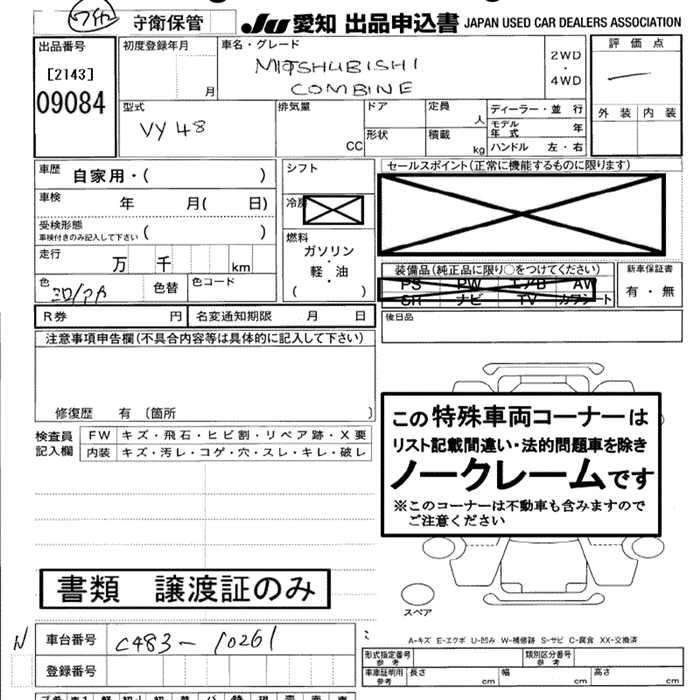 守衛保管
JU 愛知 出品申込書 JAPAN USED CAR DEALERS ASSOCIATION
出品番号
[2143]
09084
初度登録年月
月
車名・グレード
MITSHUBISHI
COMBINE
2WD
・
4WD
評価点
外装 内装
型式
VY48
排気量
CC
ドア
形状
定員
人
積載
kg
ディーラー・並 行
モデル年式 年
ハンドル 左・右
車歴
自家用・( )
車検 年 月( 日)
受検形態
車検付きのみ記入して下さい ( )
走行 万 千 km
色
色替
色コード
シフト
冷房
燃料
ガソリン
・
軽・油
( )
セールスポイント(正常に機能するものに限ります)
装備品(純正品に限り○をつけてください)
PS PW エアB AW
SR ナビ TV カワシート
新車保証書
有・無
R券 円
名変通知期限 月 日
後日品
注意事項申告欄(不具合内容等は具体的に記入して下さい)
修復歴 有 〔箇所 〕
検査員
記入欄
FW キズ・飛石・ヒビ割・リペア跡・X要
内装 キズ・汚レ・コゲ・穴・スレ・キレ・破レ
この特殊車両コーナーは
リスト記載間違い・法的問題車を除き
ノークレームです
※このコーナーは不動車も含みますので
ご注意ください
書類 譲渡証のみ
スペア
A-キズ E-エクボ U-凹み W-補修跡 S-サビ C-腐食 XX-交換済
N
車台番号 C483-10261
登録番号
形式指定番号
参考
類別区分番号
参考
車庫証明用
参考
長さ cm
幅 cm
高さ cm